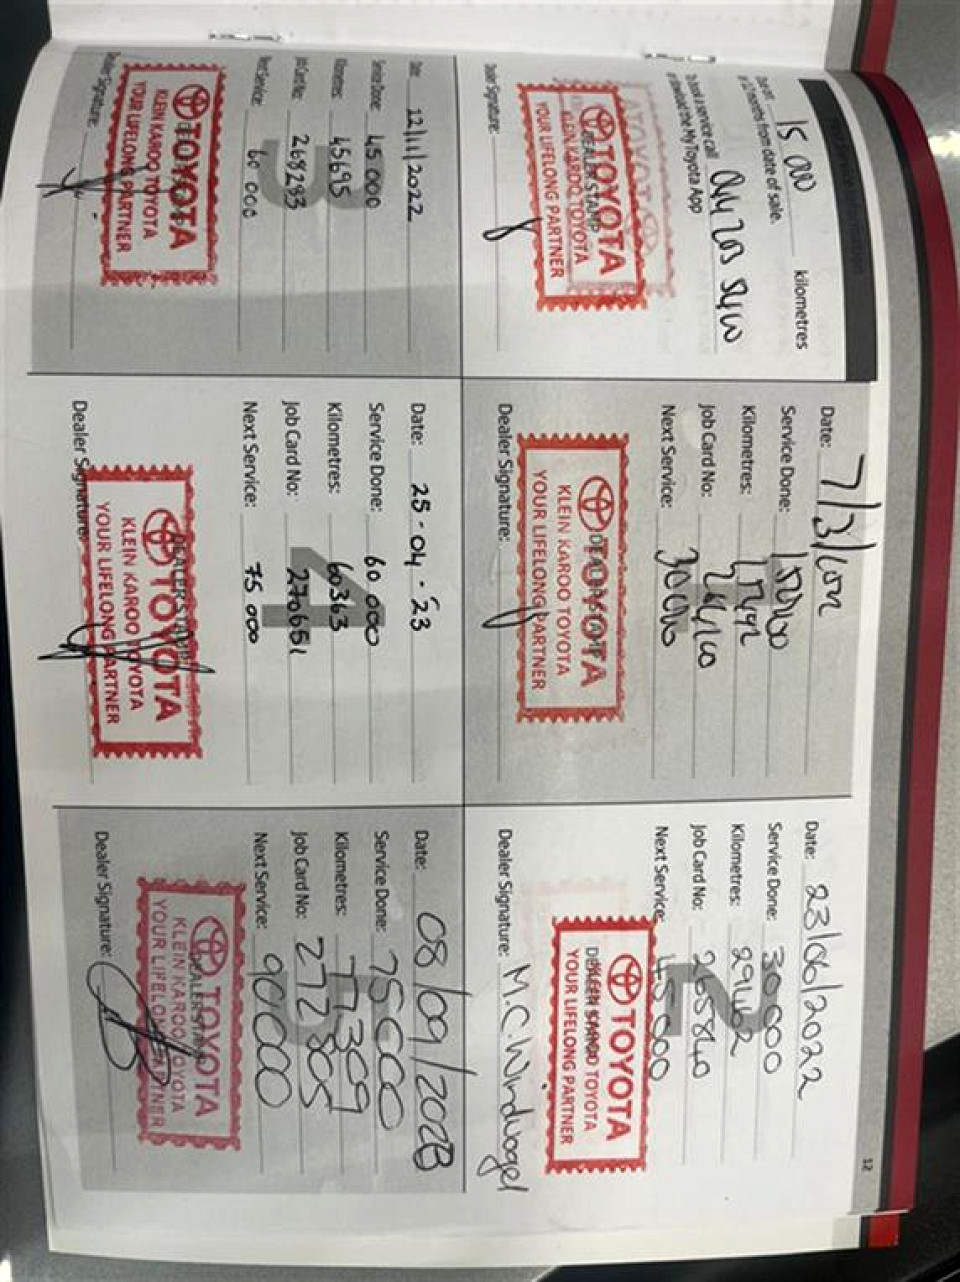 15 000 kilometres
months from date of sale.
To book a service call 044 203 5400
the MyToyota App
TOYOTA
DEALER STAMP
KLEIN KAROO TOYOTA
YOUR LIFELONG PARTNER
Dealer Signature:
Date: 7/3/2022
Service Done: 15000
Kilometres:
Job Card No:
Next Service: 30000
1
TOYOTA
DEALER STAMP
KLEIN KAROO TOYOTA
YOUR LIFELONG PARTNER
Dealer Signature:
12
Date: 23/06/2022
Service Done: 30 000
Kilometres: 29462
Job Card No: 265840
Next Service: 45 000
2
TOYOTA
DEALER STAMP
KLEIN KAROO TOYOTA
YOUR LIFELONG PARTNER
Dealer Signature: M.C. Windvogel
Date: 12/11/2022
Service Done: 45 000
Kilometres: 45695
Job Card No: 268283
Next Service: 60 000
3
TOYOTA
KLEIN KAROO TOYOTA
YOUR LIFELONG PARTNER
Dealer Signature:
Date: 25-04-'23
Service Done: 60 000
Kilometres: 60363
Job Card No: 270651
Next Service: 75 000
4
TOYOTA
DEALER STAMP
KLEIN KAROO TOYOTA
YOUR LIFELONG PARTNER
Dealer Signature:
Date: 08/09/2023
Service Done: 75000
Kilometres: 77309
Job Card No: 272805
Next Service: 90000
5
TOYOTA
DEALER STAMP
KLEIN KAROO TOYOTA
YOUR LIFELONG PARTNER
Dealer Signature: